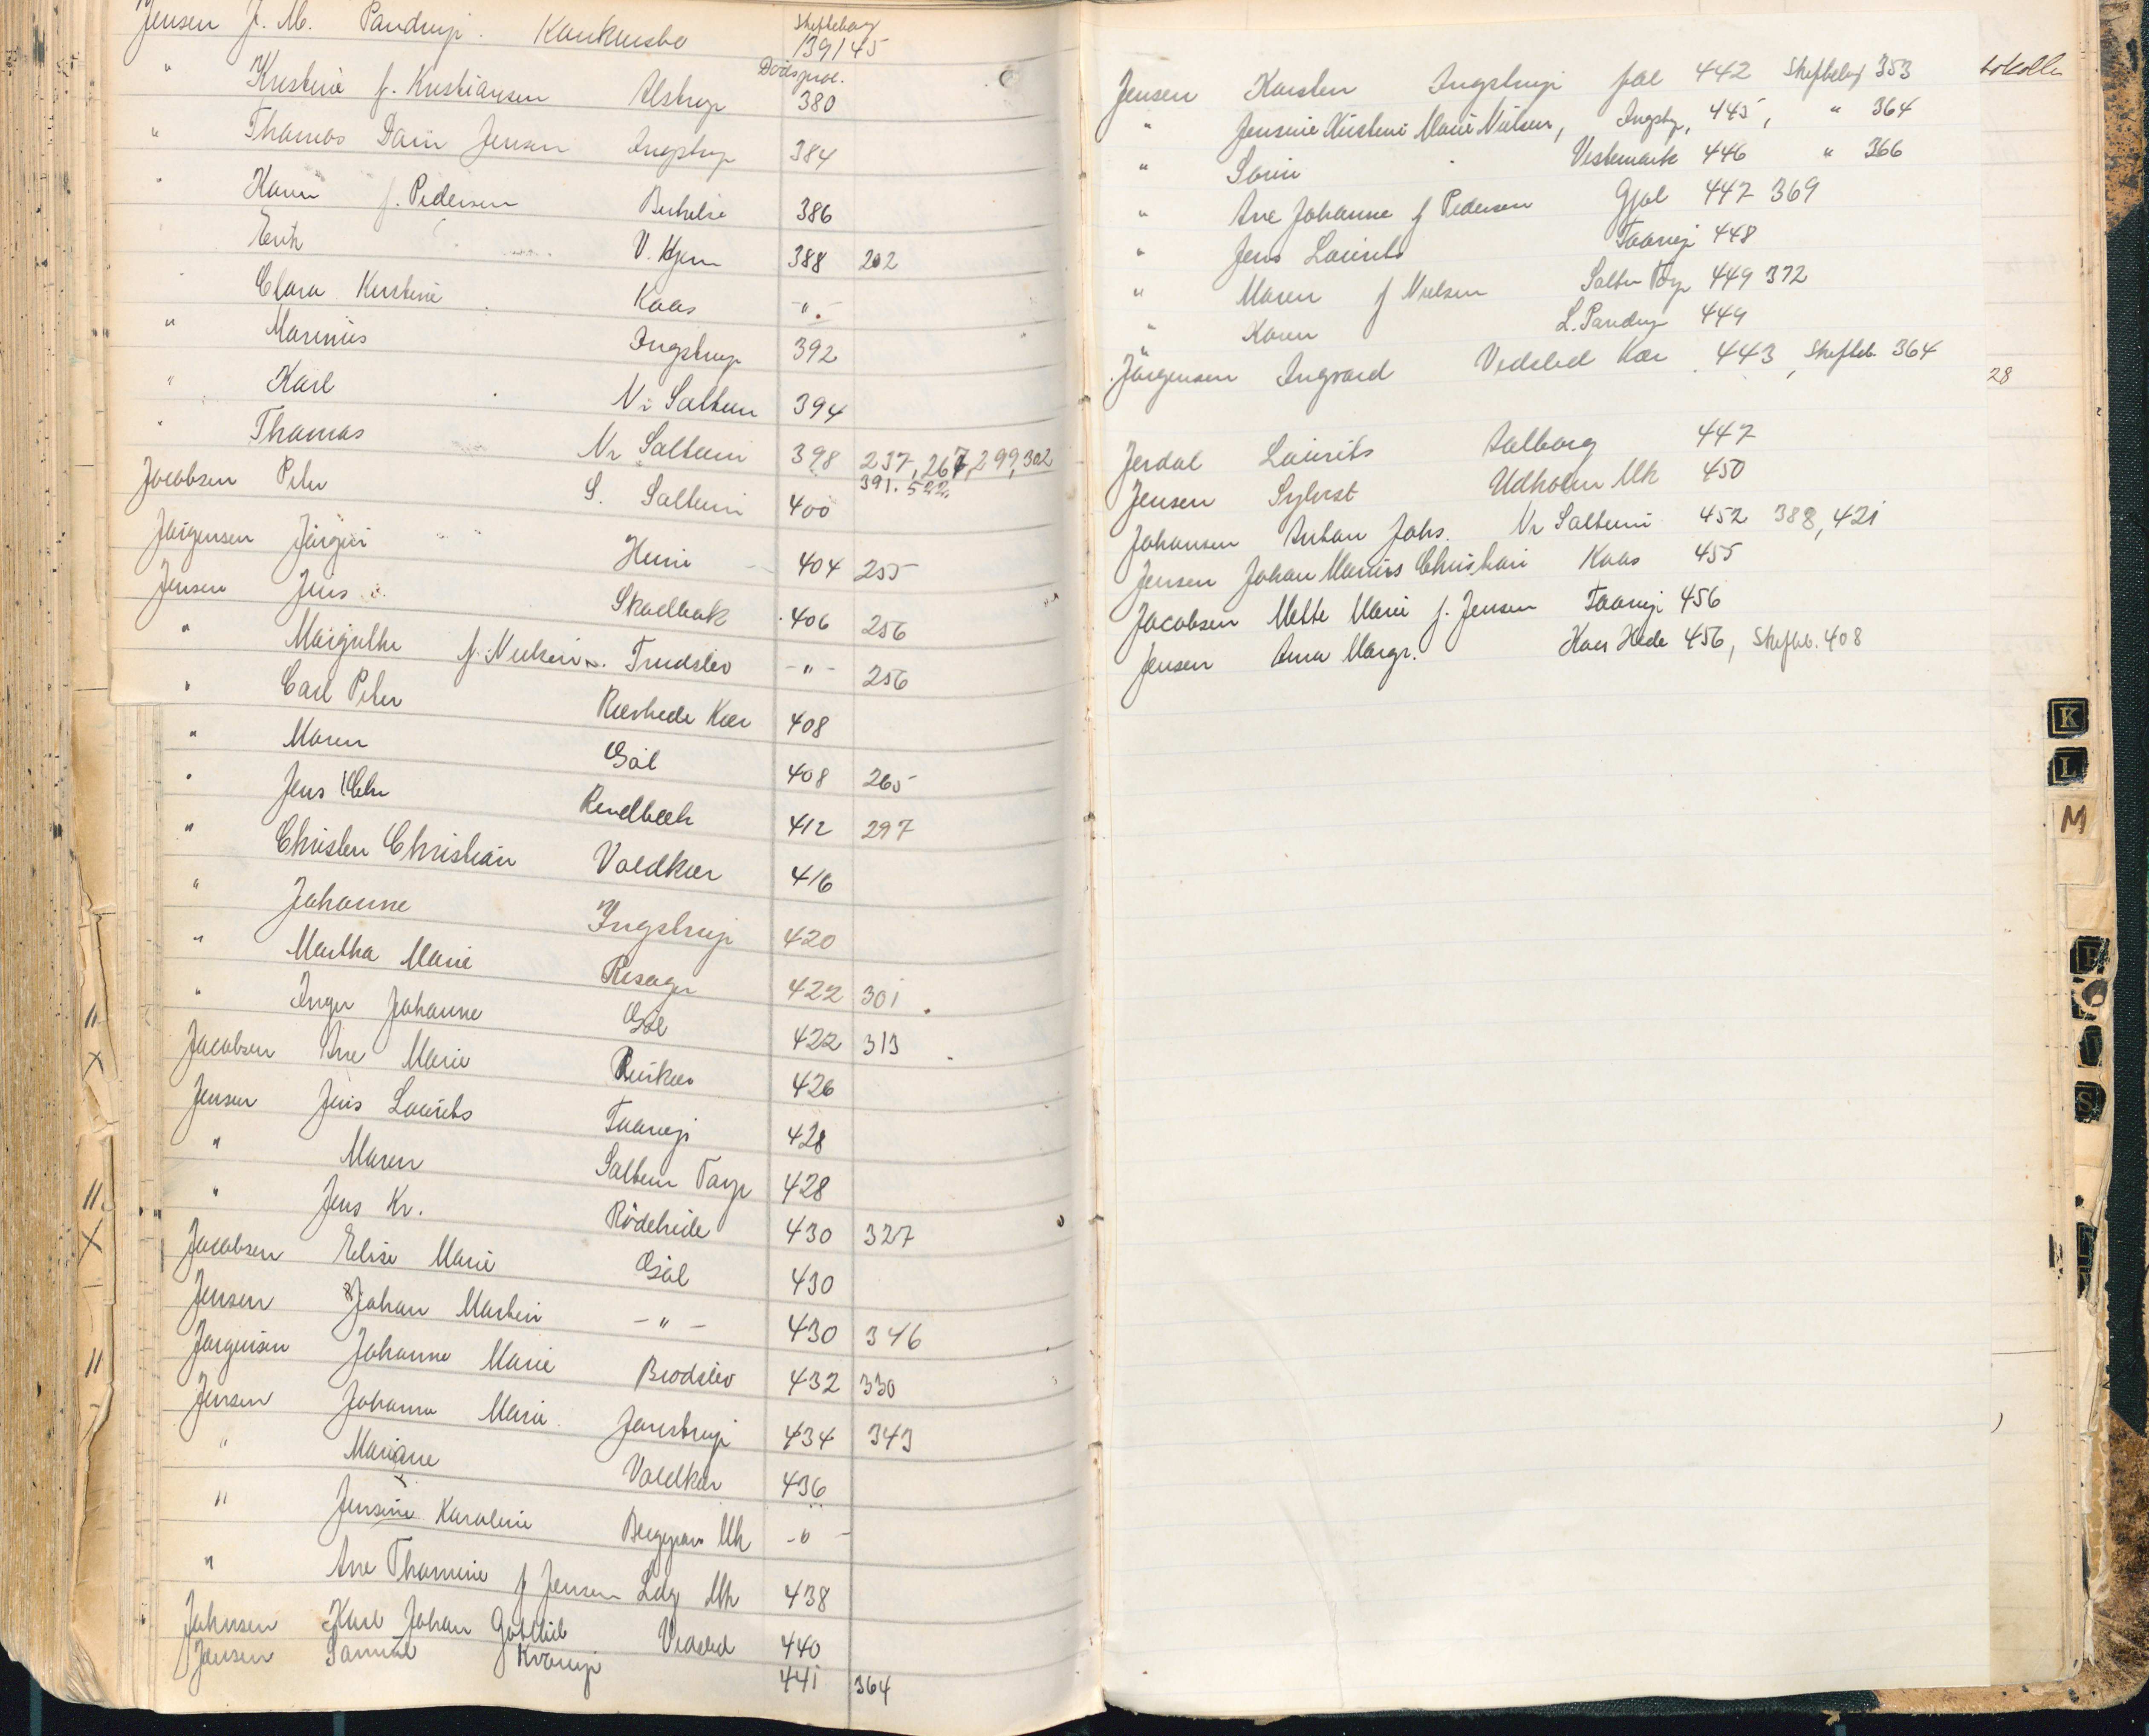 Jensen J. M. Pandrup. Konkursbo Skiftebog 139/45
Dødsprot.
" Kristine f. Kristiansen Alstrup 380
" Thomas Dam Jensen Ingstrup 384
" Karen f. Pedersen Birkelse 386
" Erik V. Hjerm 388 202
" Clara Kirstine Kaas -"-
" Marinus Ingstrup 392
" Karl Nr Saltum 394
" Thomas Nr Saltum 398 237, 267, 299, 302
391. 522.
Jacobsen Peter S. Saltum 400
Jørgensen Jørgen Hune 404 255
Jensen Jens Skadbak 406 256
" Margrethe f. Nielsen. Trudslev -"- 256
" Carl Peter Rævhede Kær 408
" Maren Gøl 408 265
" Jens Chr Rendbæk 412 297
" Christen Christian Voldkær 416
" Johanne Ingstrup 420
" Martha Marie Risager 422 301
" Inger Johanne Gøl 422 313
Jacobsen Ane Marie 426
Jensen Jens Laurits Taarup 428
" Maren Saltum Torp 428
" Jens Kr. Rødehede 430 327
Jacobsen Elise Marie Gøl 430
Jensen Johan Martin -"- 430 346
Jørgensen Johanne Marie Brodslev 432 330
Jensen Johanne Marie Janstrup 434 343
" Mariane Voldkær 436
" Jensine Karoline Mk -"-
" Ane Thomine f Jensen Mk 438
Johnsen Karl Johan Gotlieb Vedsted 440
Jensen Samuel Kvorup 441 364
Jensen Karsten Ingstrup fol 442 Skiftebog 353
" Jensine Kirstine Marie Nielsen, Ingstp, 445, " 364
" Sørine Vestermark 446 " 366
" Ane Johanne f Pedersen Gjøl 447 369
" Jens Laurits Taarup 448
" Maren f Nielsen Saltum Torp 449 372
" Karen L. Pandrup 449
Jørgensen Ingvard Vedsted Kær 443, Skifteb. 364
Jerdal Laurits Aalborg 447
Jensen Sylvest Udholm Mk 450
Johansen Anton Johs. Nr Saltum 452 388, 421
Jensen Johan Marius Christian Kaas 455
Jacobsen Mette Marie f. Jensen Taarup 456
Jensen Anna Margr. Kaas Hede 456, Skifteb. 408
28
K
L
M
P
S